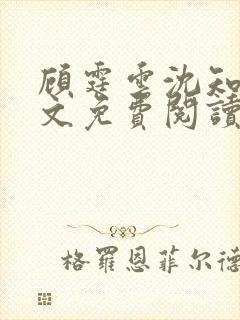 顾霆雲沈知
文免費閱讀
格羅恩菲尔德